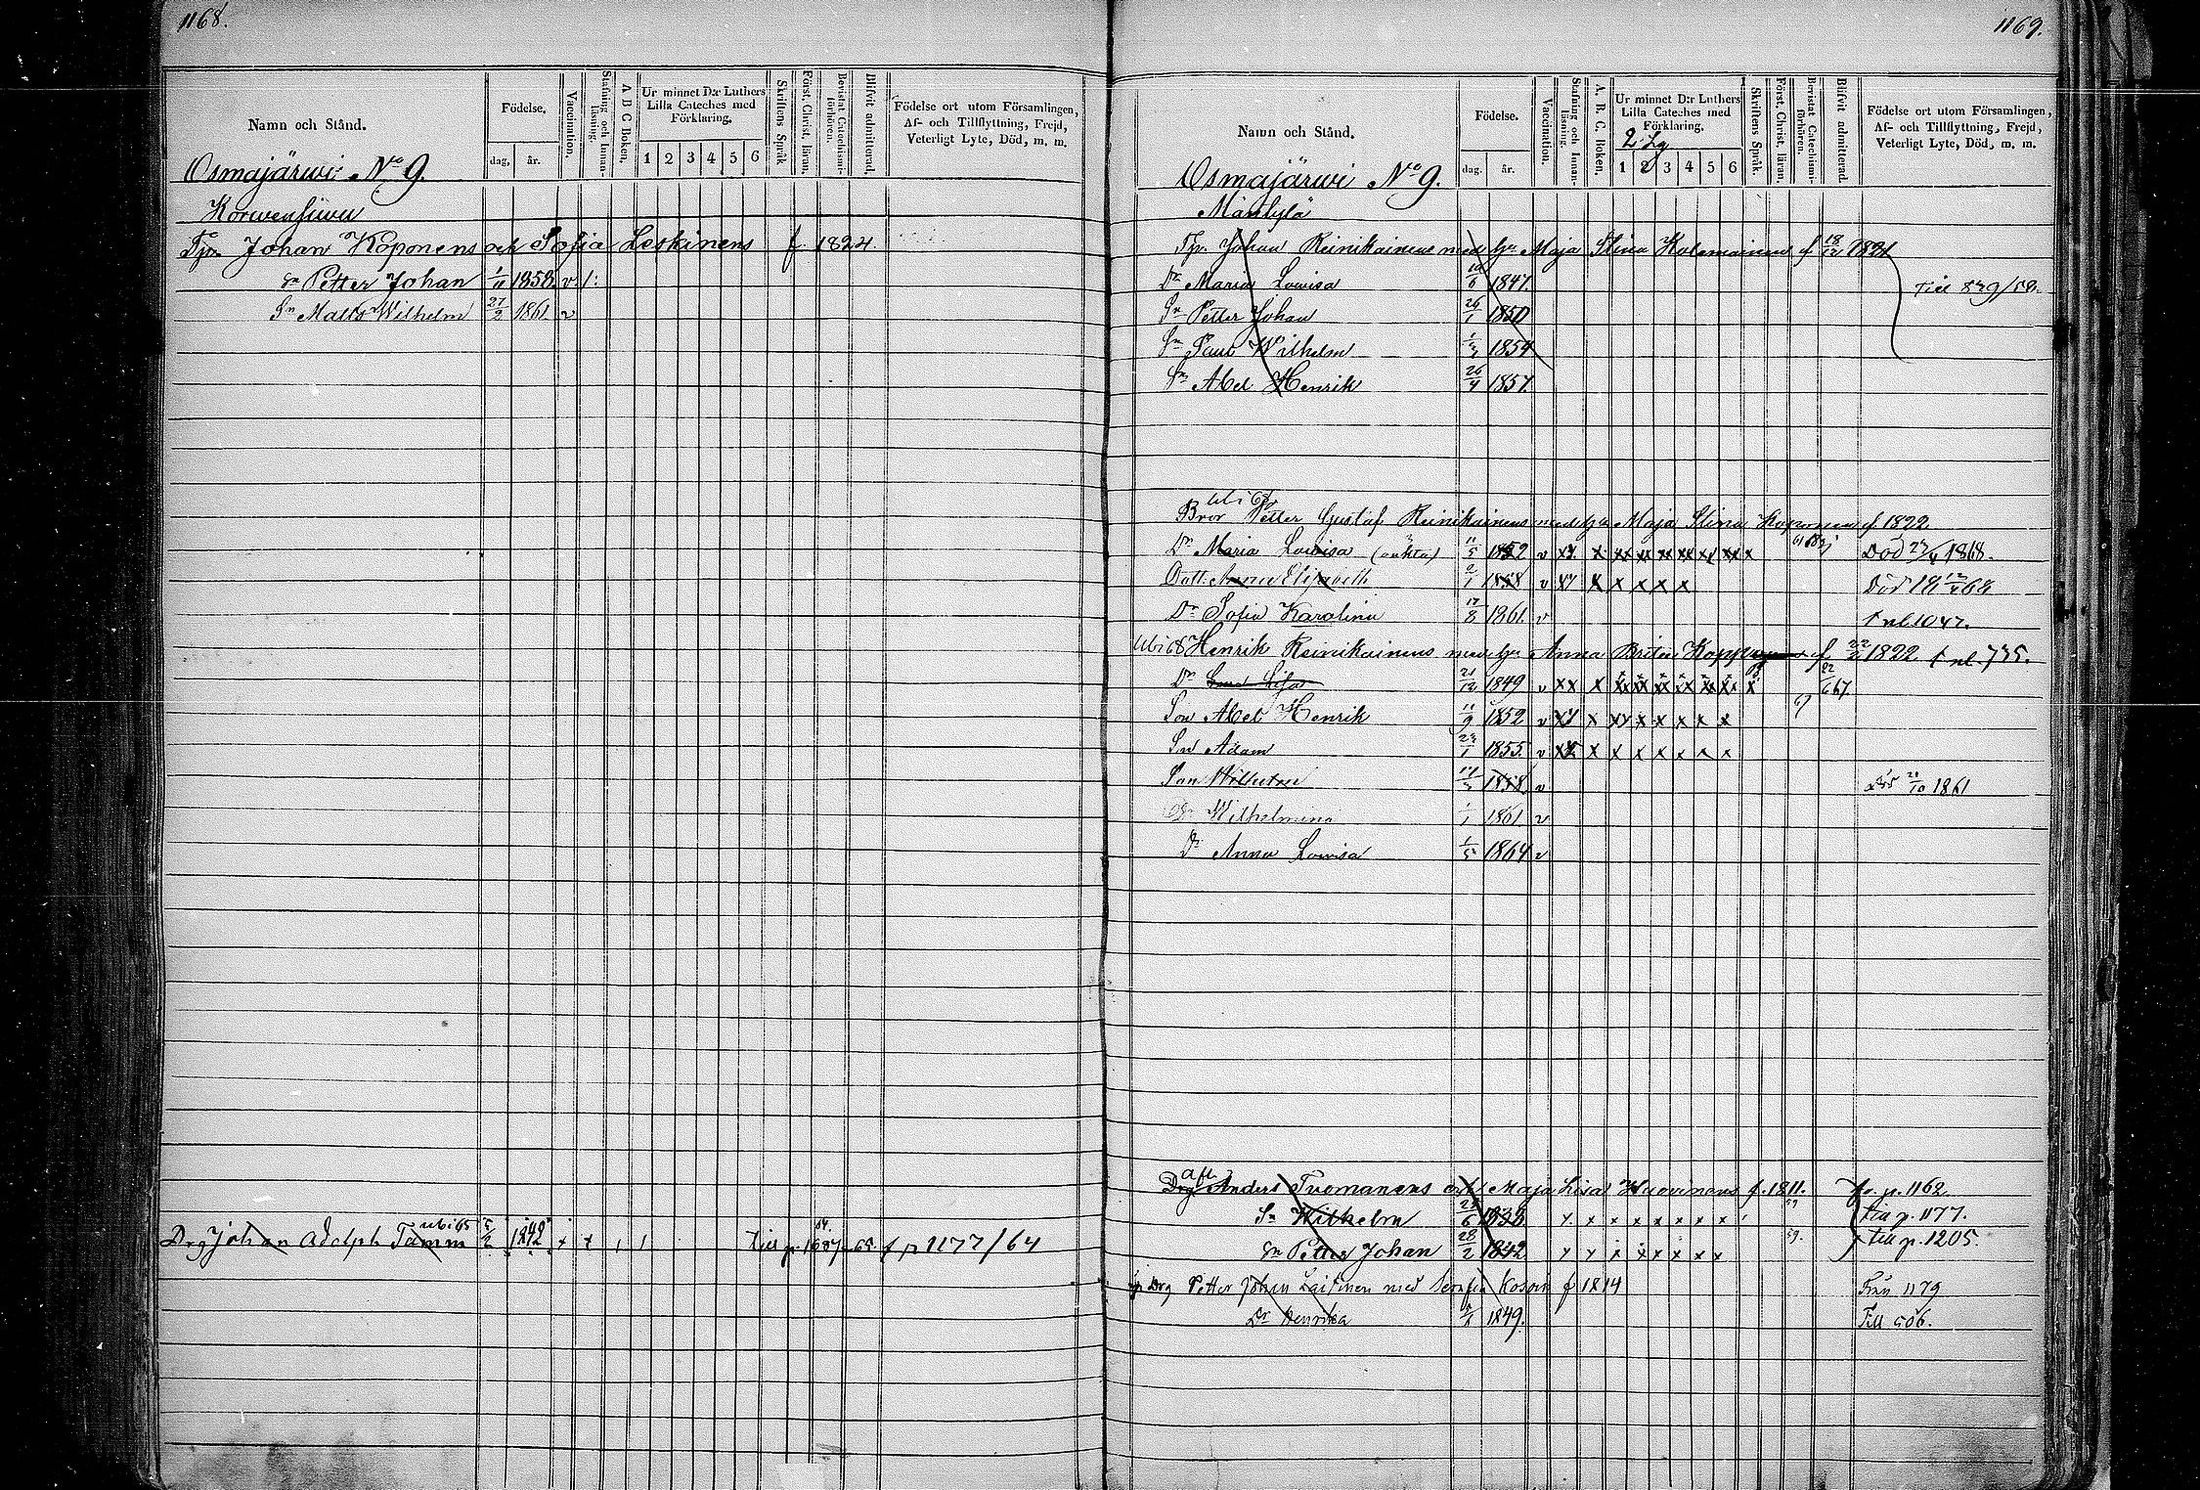 1168.
Namn och Stånd.
Födelse.
dag, år.
Vaccination.
Stafning och Innanläsning.
A B C Boken.
Ur minnet D:r Luthers Lilla Cateches med Förklaring.
1 2 3 4 5 6
Skriftens Språk.
Först. Christ. läran.
Bevistat Catechismi-förhören.
Blifvit admitterad.
Födelse ort utom Församlingen, Af- och Tillflyttning, Frejd, Veterligt Lyte, Död, m. m.
Osmajärwi No 9.
Johan Koponens och Sofia Leskinens f. 1824.
Sn Petter Johan 1858. v
Sn Matts Wilhelm 27/2 1861 v
Drg Johan Adolph Tamm ubi 65 1842 x + 1 1 Till p. 1087 65. f p 1177/64
1169.
Namn och Stånd.
Födelse.
dag. år.
Vaccination.
Stafning och Innanläsning.
A. B. C. Boken.
Ur minnet D:r Luthers Lilla Cateches med Förklaring.
1 2 3 4 5 6
Skriftens Språk.
Först. Christ. läran.
Bevistat Catechismi-förhören.
Blifvit admitterad.
Födelse ort utom Församlingen, Af- och Tillflyttning, Frejd, Veterligt Lyte, Död, m. m.
Osmajärwi No 9.
Mäntylä
Johan Reinikainens med hu Maja Stina f 18/12 1821
Dr Maria Lowisa 1847. Till 879/58.
Sn Petter Johan 26/1 1850
Sn Paul Wilhelm 1854
Sn Abel Henrik 26/4 1857.
ubi 68
Bror Petter Gustaf Reinikainens med hu Maja Stina Koponen f 1822
Dr Maria Lowisa 11/5 1852 v xx x xx xx xx xx xx xx x Död 1868.
Dott. Anna Elisabeth 2/1 1858 v xx x x x x x Död 68
Dr Sofia Karolina 17/8 1861. v 1047.
ubi 68 Henrik Reinikainens med hu Anna Brita f. 22/2 1822. 735.
Dr Lisa 21/12 1849 v xx x xx xx xx xx xx xx x 67.
Son Abel Henrik 11/9 1852 v xx x xx x x x x x
Sn Adam 1855. v xx x x x x x x x
Son Wilhelm 1858 v död 20/10 1861
Dr Wilhelmina 1/1 1861 v
Dr Anna Lowisa 1/5 1864 v
Drg Anders Tuomanens Maja Lisa Huovinens f. 1811. fr. p. 1162
Sn Wilhelm 1838 x x x x x x x x till p. 1177.
Sn Petter Johan 28/2 1842 x x x x x x x x till p. 1205.
Drg Petter Johan Laitinen med f 1814 Från 1179
Dr Henrika 1849. Till 506.